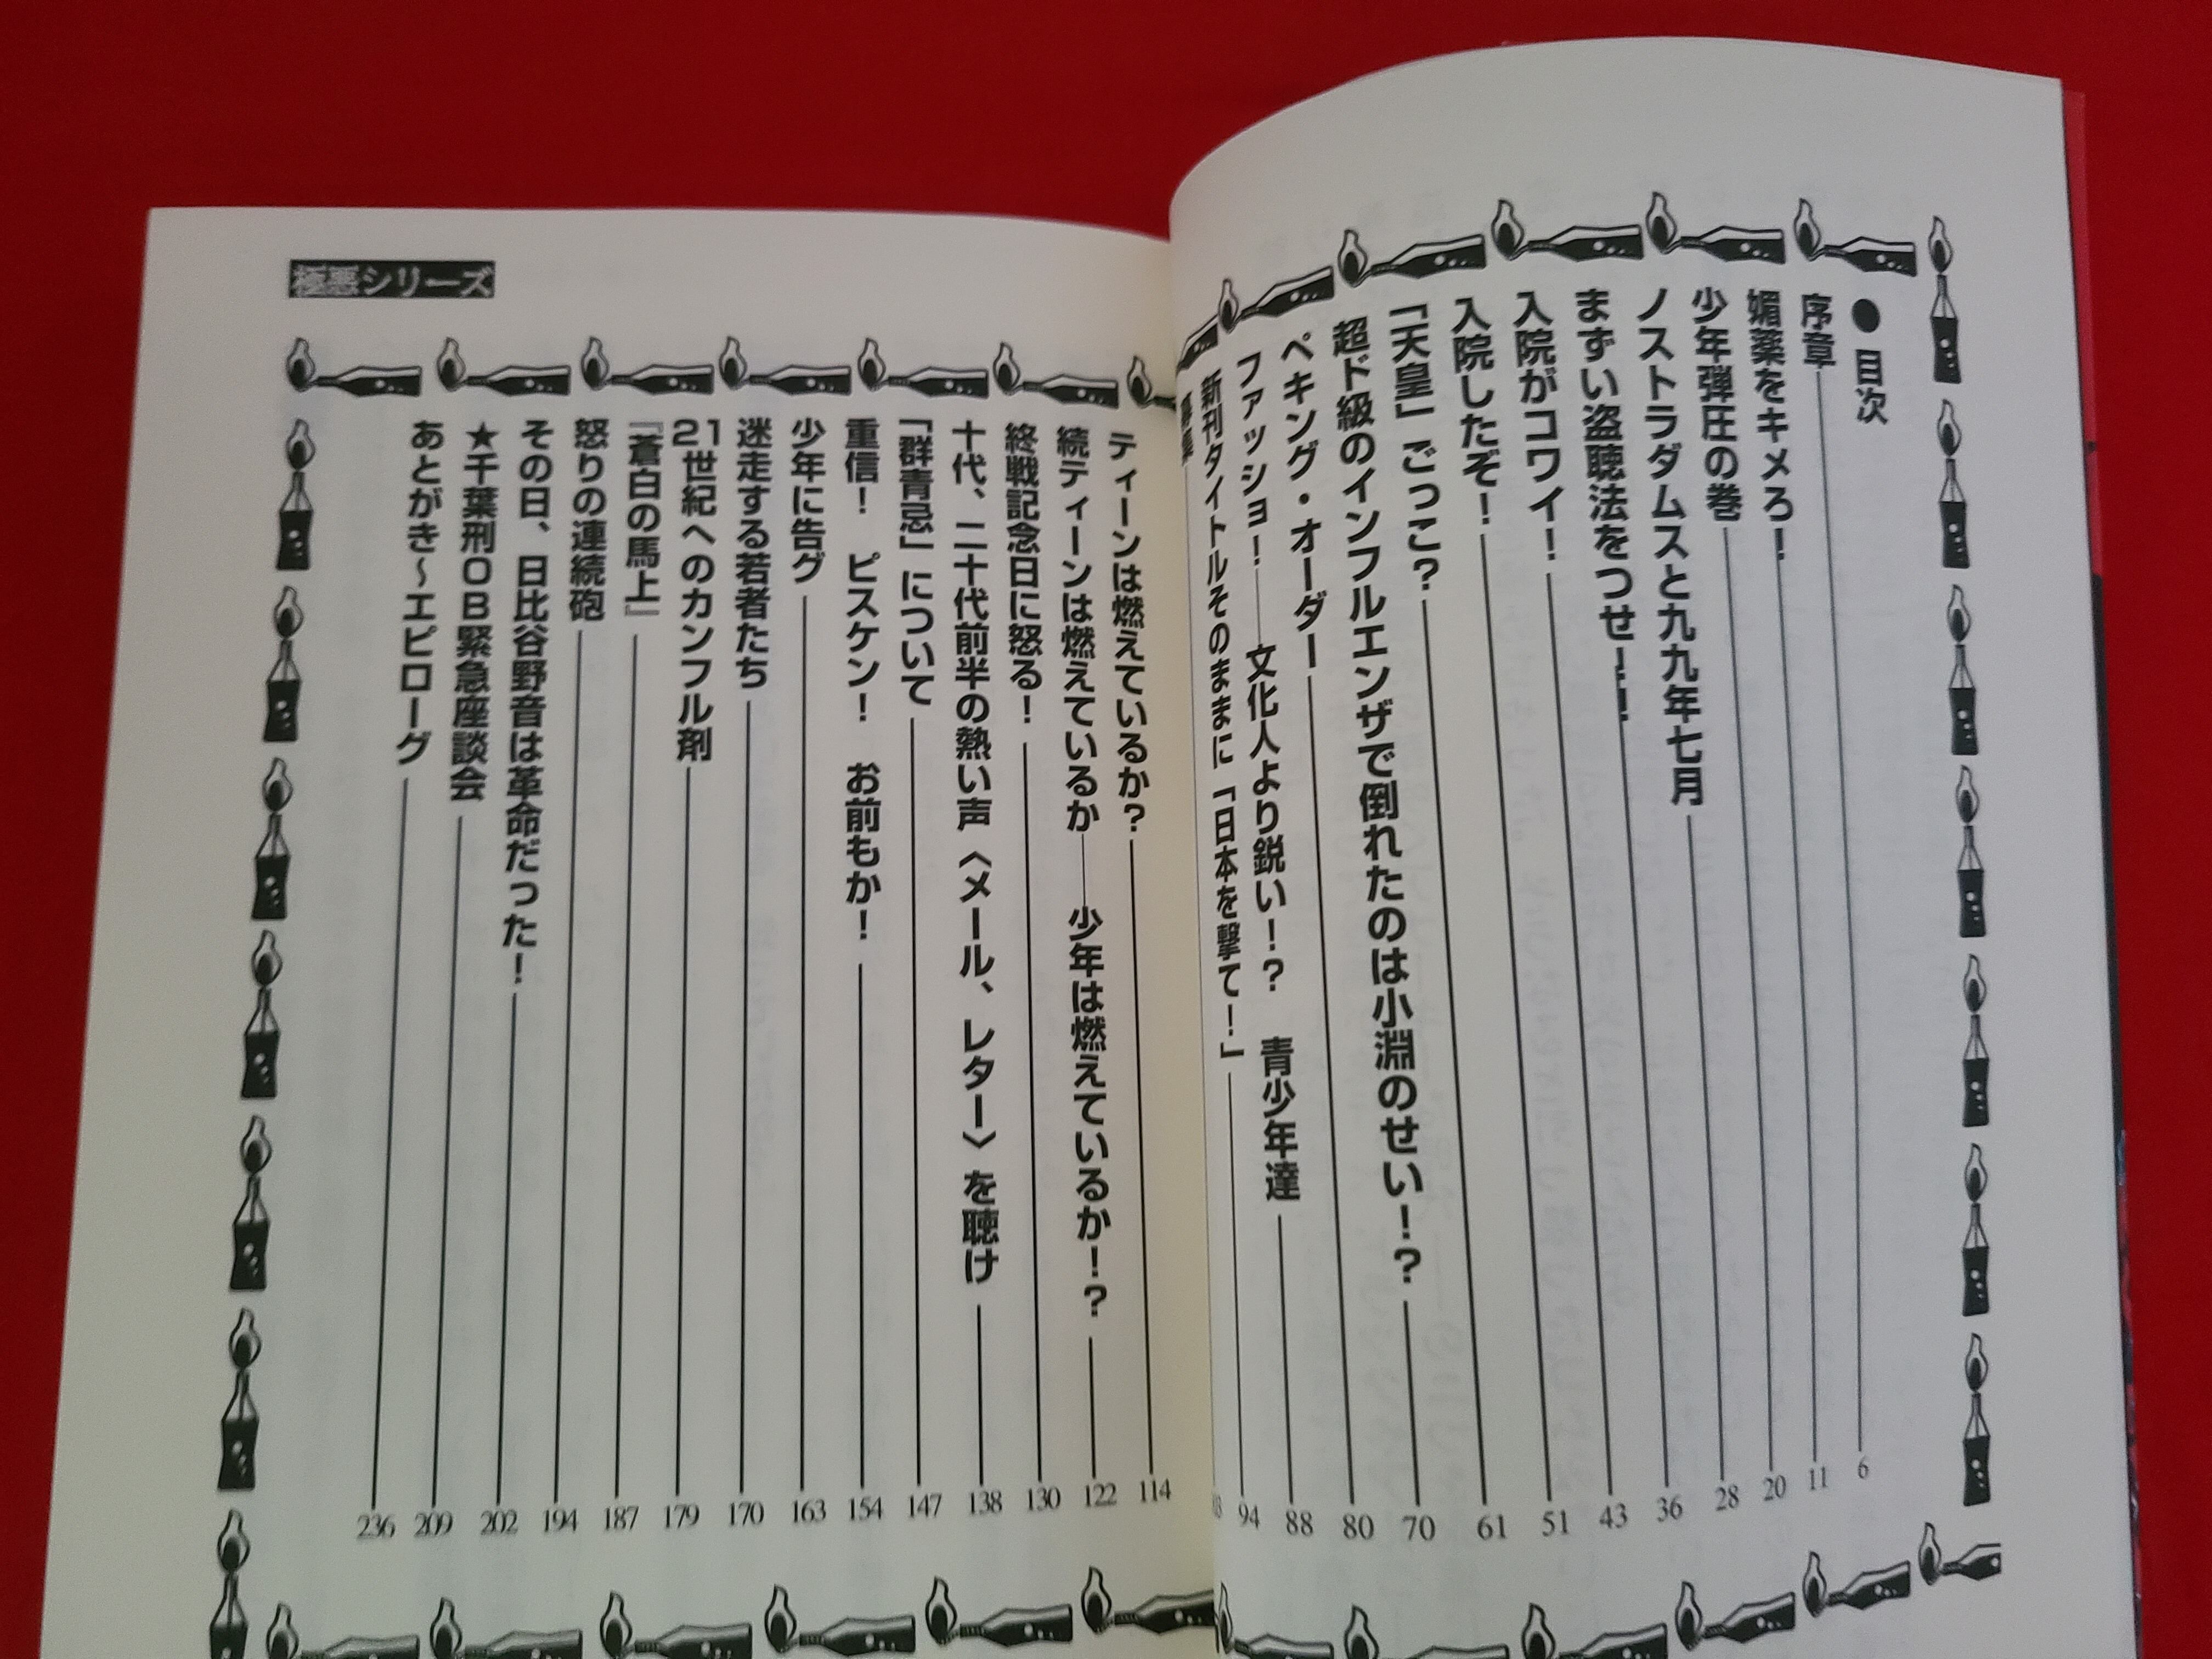 ●目次
序章 6
媚薬をキメろ! 11
少年弾圧の巻 20
ノストラダムスと九九年七月 28
まずい盗聴法をつせ!! 36
入院がコワイ! 43
入院したぞ! 51
「天皇」ごっこ? 61
超ド級のインフルエンザで倒れたのは小淵のせい!? 70
ペキング・オーダー 80
ファッショ!――文化人より鋭い!? 青少年達 88
新刊タイトルそのままに「日本を撃て!」 94
極悪シリーズ
ティーンは燃えているか? 114
続ティーンは燃えているか――少年は燃えているか!? 122
終戦記念日に怒る! 130
十代、二十代前半の熱い声〈メール、レター〉を聴け 138
「群青忌」について 147
重信! ピスケン! お前もか! 154
少年に告グ 163
迷走する若者たち 170
21世紀へのカンフル剤 179
『蒼白の馬上』 187
怒りの連続砲 194
その日、日比谷野音は革命だった! 202
★千葉刑OB緊急座談会 209
あとがき~エピローグ 236